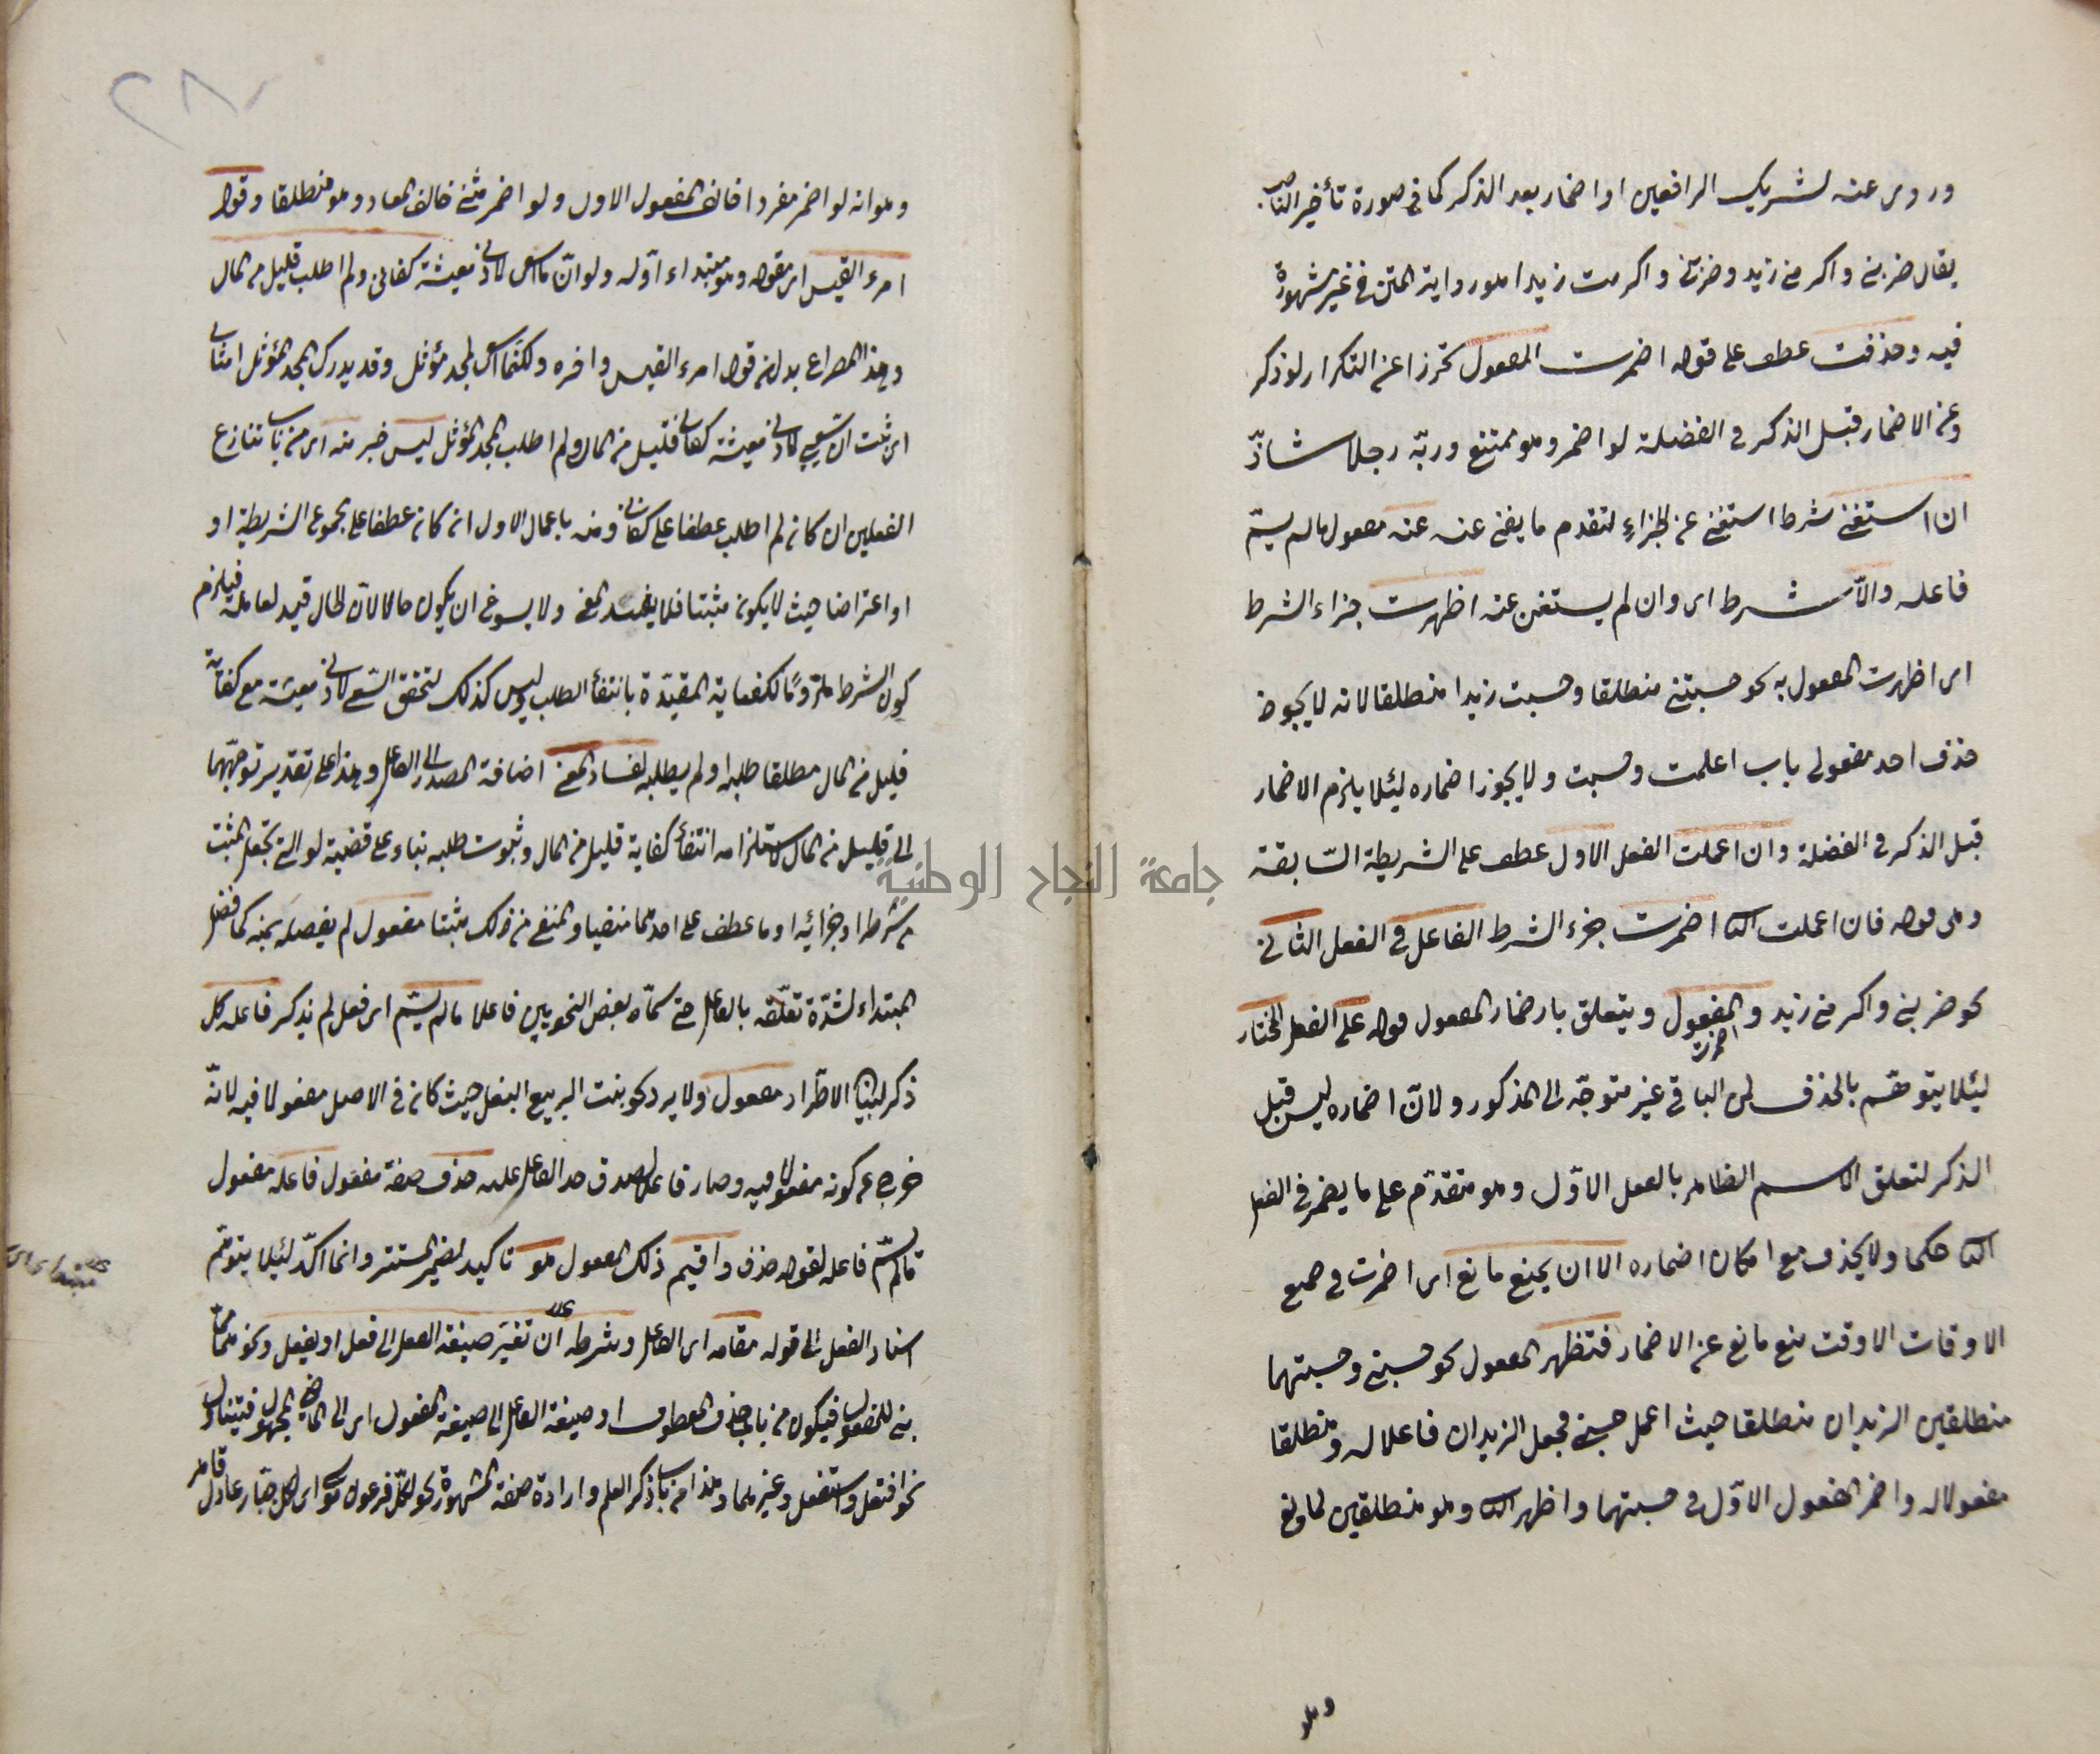 وروى عنه تشريك الرافعين او اضمار بعد الذكر كما في صورة تأخير الناصب
يقال ضربني واكرمني زيد وضربني واكرمت زيدا هو رواية المتن غير مشهورة
فيه وحذفت عطف على قوله اضمرت المفعول تحرزا عن التكرار لو ذكر
وعن الاضمار قبل الذكر في الفضلة لو اضمر وهو ممتنع وربه رجلا شاذ
ان استغنى شرط استغنى عن الجزاء لتقدم ما يغنى عنه عنه مفعول ما لم يسم
فاعله والا شرط اى وان لم يستغن عنه اظهرت جزاء الشرط
اى اظهرت المفعول به نحو حسبتني منطلقا وحسبت زيدا منطلقا لانه لا يجوز
حذف احد مفعولى باب اعلمت وحسبت ولا يجوز اضماره لئلا يلزم الاضمار
قبل الذكر في الفضلة وان اعملت الفعل الاول عطف على الشريطة السابقة
وهى قوله فان اعملت الثا اضمرت جزء الشرط الفاعل في الفعل الثاني
نحو ضربني واكرمني زيد والمفعول ويتعلق باضمار المفعول قوله على الفعل المختار
اضمرت
لئلا يتوهم بالحذف ان الباقي غير متوجه الى المذكور ولان اضماره ليس قبل
الذكر لتعلق الاسم الظاهر بالفعل الاول وهو متقدم على ما يضمر في الفعل
الثا حكما ولا يحذف مع امكان اضماره الا ان يمنع مانع اى اضمرت في جميع
الاوقات الا وقت منع مانع عن الاضمار فتظهر المفعول نحو حسبني وحسبتهما
منطلقين الزيدان منطلقا حيث اعمل حسبني فجعل الزيدان فاعلا له ومنطلقا
مفعولا له واضمر المفعول الاول في حسبتهما واظهر الثا وهو منطلقين لمانع
وهو
٢٨٠
وهو انه لو اضمر مفردا خالف المفعول الاول ولو اضمر مثنى خالف المعاد وهو منطلقا وقول
امرء القيس اى مقوله وهو مبتداء اوله ولو ان ما اسعى لادنى معيشة كفاني ولم اطلب قليل من المال
وهذا المصراع بدل من قول امرء القيس واخره ولكنما اسعى لمجد مؤثل وقد يدرك المجد المؤثل امثالى
اى ثبت ان سعيي لادنى معيشة كفانى قليل من المال ولم اطلب المجد المؤثل ليس خبر منه اى من باب تنازع
الفعلين ان كان لم اطلب عطفا على كفانى ومنه باعمال الاول ان كان عطفا على مجموع الشريطة او
او اعتراضا حيث لا يكون مثبتا فلا يفسد المعنى ولا يسوغ ان يكون حالا لان الحال قيد لعامله فيلزم
كون الشرط ملزوما لكفاية المقيدة بانتفأ الطلب وليس كذلك لتحقق السعى لادنى معيشة مع كفاية
قليل من المال مطلقا طلبه او لم يطلبه لفساد المعنى اضافة المصدر الى الفاعل وهذا على تقدير توجههما
الى قليل من المال لاستلزامه انتفأ كفاية قليل من المال وثبوت طلبه بناء على قضية لو التي تجعل المثبت
من شرطه او جزائه او ما عطف على احدهما منفيا والمنفي من ذلك مثبتا مفعول لم يفصله بمنه كما فصل
المبتداء لشدة تعلقه بالفاعل حتى سماه بعض النحويين فاعلا ما لم يسم اى فعل لم يذكر فاعله كل
ذكر لبيان الاطراد مفعول ولا يرد نحو بنت الربيع البقل حيث كان في الاصل مفعولا فيه لانه
خرج عن كونه مفعولا فيه وصار فاعلا لصدق حد الفاعل عليه حذف صفة مفعول فاعله مفعول
ما لم يسم فاعله لقوله حذف واقيم ذلك المفعول هو تأكيد لضمير المستتر وانما اكد لئلا يتوهم
اسناد الفعل الى قوله مقامه اى الفاعل وشرطه ان تغير صيغة الفعل الى فعل او يفعل ونحوهما مما
بنى للمفعول فيكون من باب حذف المعطوف او صيغة الفاعل الى صيغة المفعول اى الى الماضى المجهول فيتناول
نحو افتعل واستفعل وغيرهما وهذا من باب ذكر العلم وارادة صفته المشهورة نحو لكل فرعون موسى اى لكل جبار عادل قاهر
جامعة النجاح الوطنية